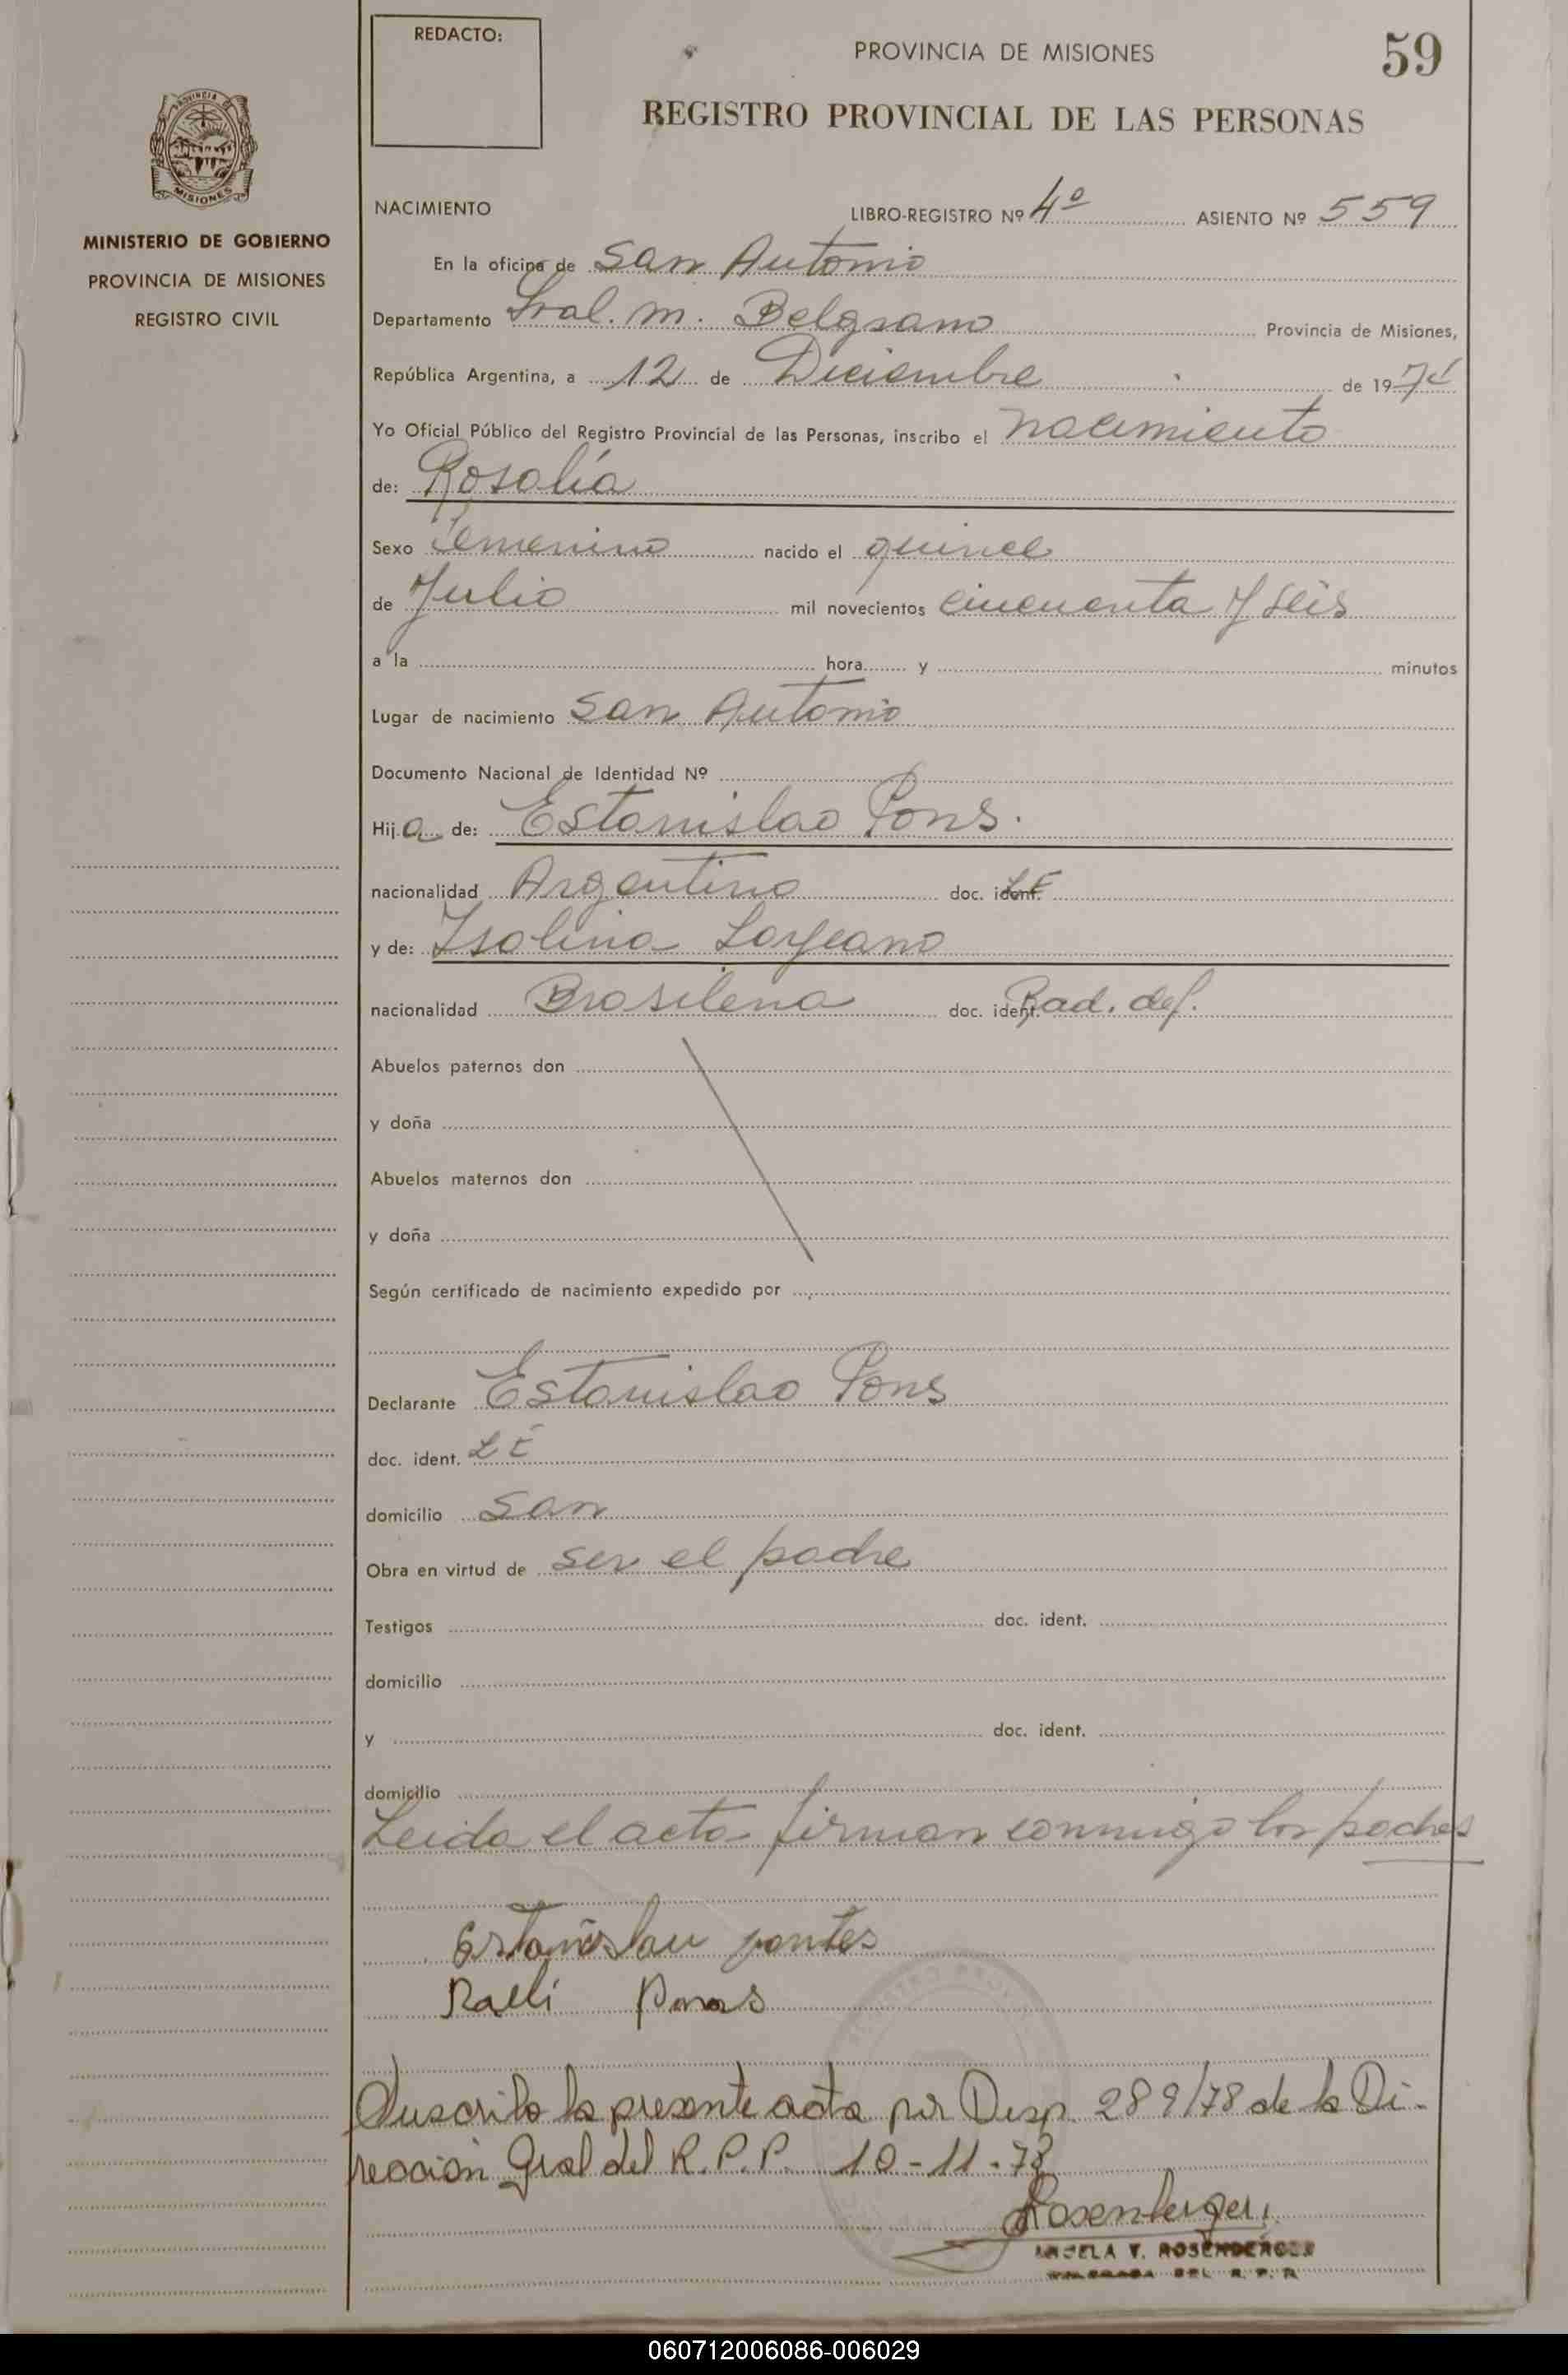 REDACTO:
PROVINCIA DE MISIONES
59
REGISTRO PROVINCIAL DE LAS PERSONAS
PROVINCIA DE
MISIONES
MINISTERIO DE GOBIERNO
PROVINCIA DE MISIONES
REGISTRO CIVIL
NACIMIENTO
LIBRO-REGISTRO Nº 4º ASIENTO Nº 559
En la oficina de San Antonio
Departamento Gral. M. Belgrano Provincia de Misiones,
República Argentina, a 12 de Diciembre de 197
Yo Oficial Público del Registro Provincial de las Personas, inscribo el nacimiento
de: Rosalía
Sexo femenino nacido el quince
de Julio mil novecientos cincuenta y seis
a la hora y minutos
Lugar de nacimiento San Antonio
Documento Nacional de Identidad Nº
Hija de: Estanislao Pons.
nacionalidad Argentino doc. ident. LE
y de: Isolina
nacionalidad Brasilena doc. ident. Rad. def.
Abuelos paternos don
y doña
Abuelos maternos don
y doña
Según certificado de nacimiento expedido por
Declarante Estanislao Pons
doc. ident. LE
domicilio San
Obra en virtud de ser el padre
Testigos doc. ident.
domicilio
y doc. ident.
domicilio
Leida el acta firman conmigo los padres
Estanislau pontes
Suscrito la presente acta por Disp. 289/78 de la Di-
reccion Gral del R.P.P. 10-11-78
Rosenberger
ANGELA V. ROSENBERGER
DEL R. P. P.
060712006086-006029